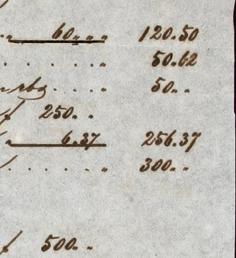 60 „ „ „ 120.50
. . . . . „ 50.62
rbg . . . . „ 50 „
250 „
6.37 256.37
. . . . . „ 300 „
500 „